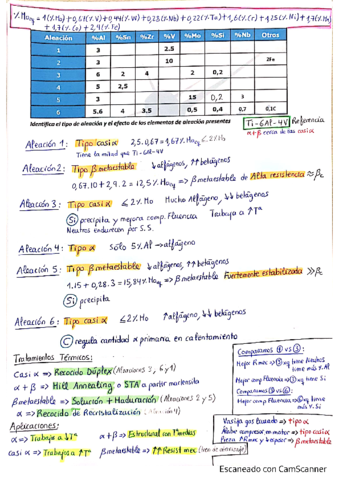 %Moeq = 1(%Mo) + 0,67(%V) + 0,44(%W) + 0,28(%Nb) + 0,22(%Ta) + 1,6(%Cr) + 1,25(%Ni) + 1,7(%Mn)
+ 1,7(%Co) + 2,4(%Fe)
Aleación %Al %Sn %Zr %V %Mo %Si %Nb Otros
1 3 2.5
2 3 10 2Fe
3 6 2 4 2 0,2
4 5 2,5
5 3 15 0,2 3
6 5.6 4 3.5 0,5 0,4 0,7 0,1C
Identifica el tipo de aleación y el efecto de los elementos de aleación presentes
Ti-6Al-4V Referencia
α+β cerca de las casi α
Aleación 1: Tipo casi α 2,5·0,67=1,67% Moeq ≤2%
Tiene la mitad que Ti-6Al-4V
Aleación 2: Tipo β metaestable ↓alfágenos, ↑↑betágenos
0,67·10+2,4·2=12,5% Moeq => β metaestable de Alta resistencia ≈βc
Aleación 3: Tipo casi α ≤2% Mo Mucho Alfágeno, ↓↓ betágenos
Si precipita y mejora comp. Fluencia Trabaja a ↑Tª
Neutros endurecen por S.S.
Aleación 4: Tipo α Sólo 5% Al → alfágeno
Aleación 5: Tipo β metaestable ↓alfágenos, ↑↑ betágenos
1·15+0,28·3=15,84% Moeq => β metaestable Fuertemente estabilizada >βc
Si precipita
Aleación 6: Tipo casi α ≤2% Mo ↑alfágeno, ↓↓ betágenos
C regula cantidad α primaria, en calentamiento
Tratamientos Térmicos:
Casi α => Recocido Dúplex
α+β => Mill Annealing o STA a partir martensita
β metaestable => Solución + Maduración (Aleaciones 2 y 5)
α => Recocido de Recristalización
Aplicaciones:
α => Trabajo a ↓Tª α+β => Estructural con
Casi α => Trabajos a ↑Tª β metaestable => ↑↑ Resist mec
Comparamos
Mejor R mec
Mejor comp Fluencia
Comparamos
Mejor comp Fluencia
Vasija gas licuado => tipo α
Álabe compresor en motor => tipo casi α
Pieza ↑R mec y espesor => β metaestable
Escaneado con CamScanner